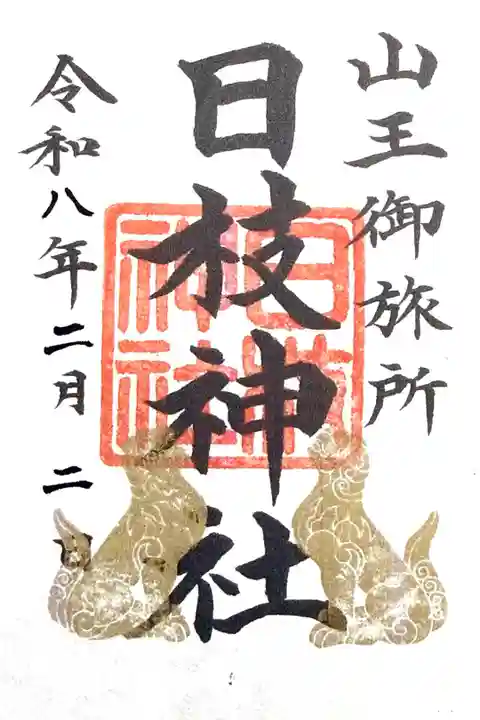 山王御旅所
日枝神社
日枝神社
令和八年二月 二